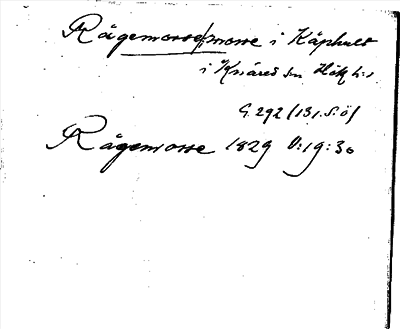 Rågemosse/mosse i Käphult
i Knäred sn Hök h:d
G. 292 /131. S. ö/
Rågemosse 1829 V:19:30